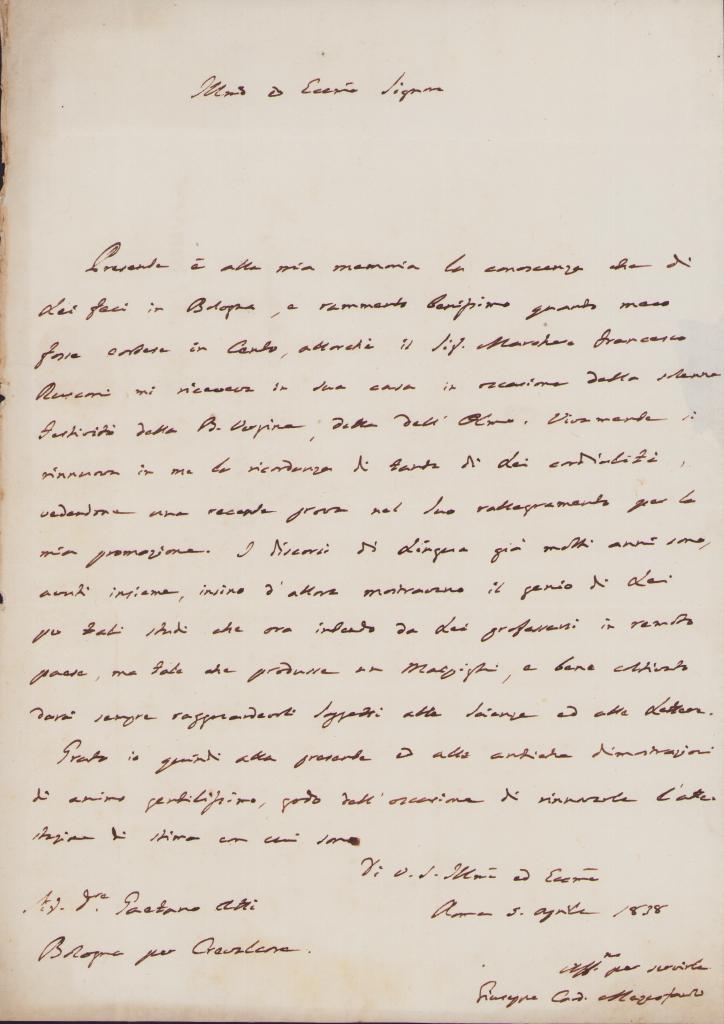 Illmo ed Eccmo Signore
Presente è alla mia memoria la conoscenza che di
Lei feci in Bologna, e rammento benissimo quanto meco
fosse cortese in Cento, allorchè il Sig. Marchese Francesco
Rusconi mi riceveva in sua casa in occasione della solenne
festività della B. Vergine, detta dell' Olmo. Vivamente si
rinnuova in me la ricordanza di tanta di Lei cordialità,
vedendone una recente prova nel Suo rallegramento per la
mia promozione. I discorsi di Lingua già molti anni sono,
avuti insieme, insino d'allora mostravano il genio di Lei
per tali studi che ora intendo da Lei professarsi in remoto
paese, ma tale che produsse un Malpighi, e bene coltivato
darà sempre ragguardevoli Soggetti alle Scienze ed alle Lettere.
Grato io quindi alla presente ed alle antiche dimostrazioni
di animo gentilissimo, godo dell'occasione di rinnovarle l'atte-
stazione di stima con cui sono
Di V. S. Illma ed Eccma
Sig. Dr. Gaetano Atti
Roma 5. aprile 1838
Bologna per Crevalcore.
Affmo per servirla
Giuseppe Card. Mezzofanti